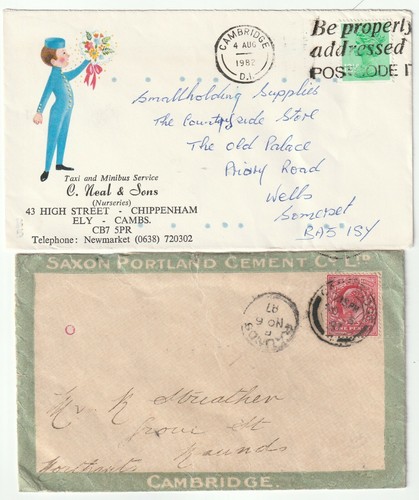 CAMBRIDGE
4 AUG
1982
D.I.
Be properly
addressed
POSTCODE IT
Smallholding Supplies
The Countryside Store
The Old Palace
Priory Road
Wells
Somerset
BA5 1SY
Taxi and Minibus Service
C. Neal & Sons
(Nurseries)
43 HIGH STREET - CHIPPENHAM
ELY - CAMBS.
CB7 5PR
Telephone: Newmarket (0638) 720302
SAXON PORTLAND CEMENT Co Ltd
RAUNDS
NO 6
Mr. R Streather
Grove St
Raunds
Northants
CAMBRIDGE.